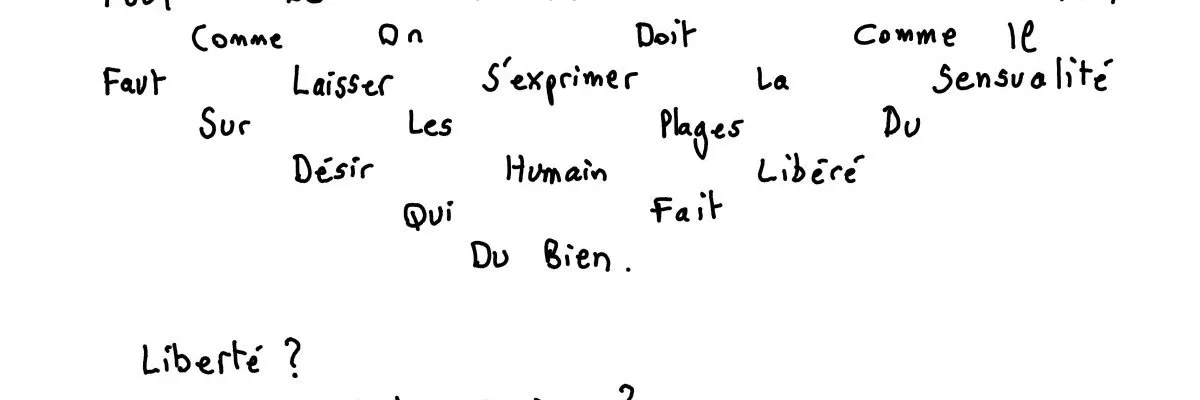 Comme On Doit Comme Il
Faut Laisser S'exprimer La Sensualité
Sur Les Plages Du
Désir Humain Libéré
Qui Fait
Du Bien.
Liberté ?
?